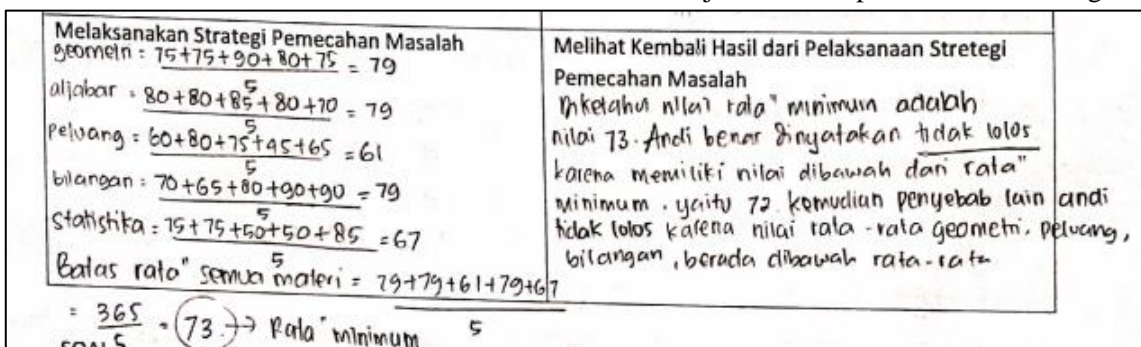 Melaksanakan Strategi Pemecahan Masalah
geometri : 75+75+90+80+75 = 79
5
aljabar : 80+80+85+80+70 = 79
5
Peluang = 60+80+75+45+65 = 61
5
bilangan : 70+65+80+90+90 = 79
5
Statistika = 75+75+50+50+85 = 67
5
Batas rata" semua materi = 79+79+61+79+67
5
= 365 = 73 → Rata" minimum
5
Melihat Kembali Hasil dari Pelaksanaan Stretegi
Pemecahan Masalah
Diketahui nilai rata" minimum adalah
nilai 73. Andi benar dinyatakan tidak lolos
karena memiliki nilai dibawah dari rata"
minimum. yaitu 72. kemudian penyebab lain andi
tidak lolos karena nilai rata-rata geometri, peluang,
bilangan, berada dibawah rata-rata